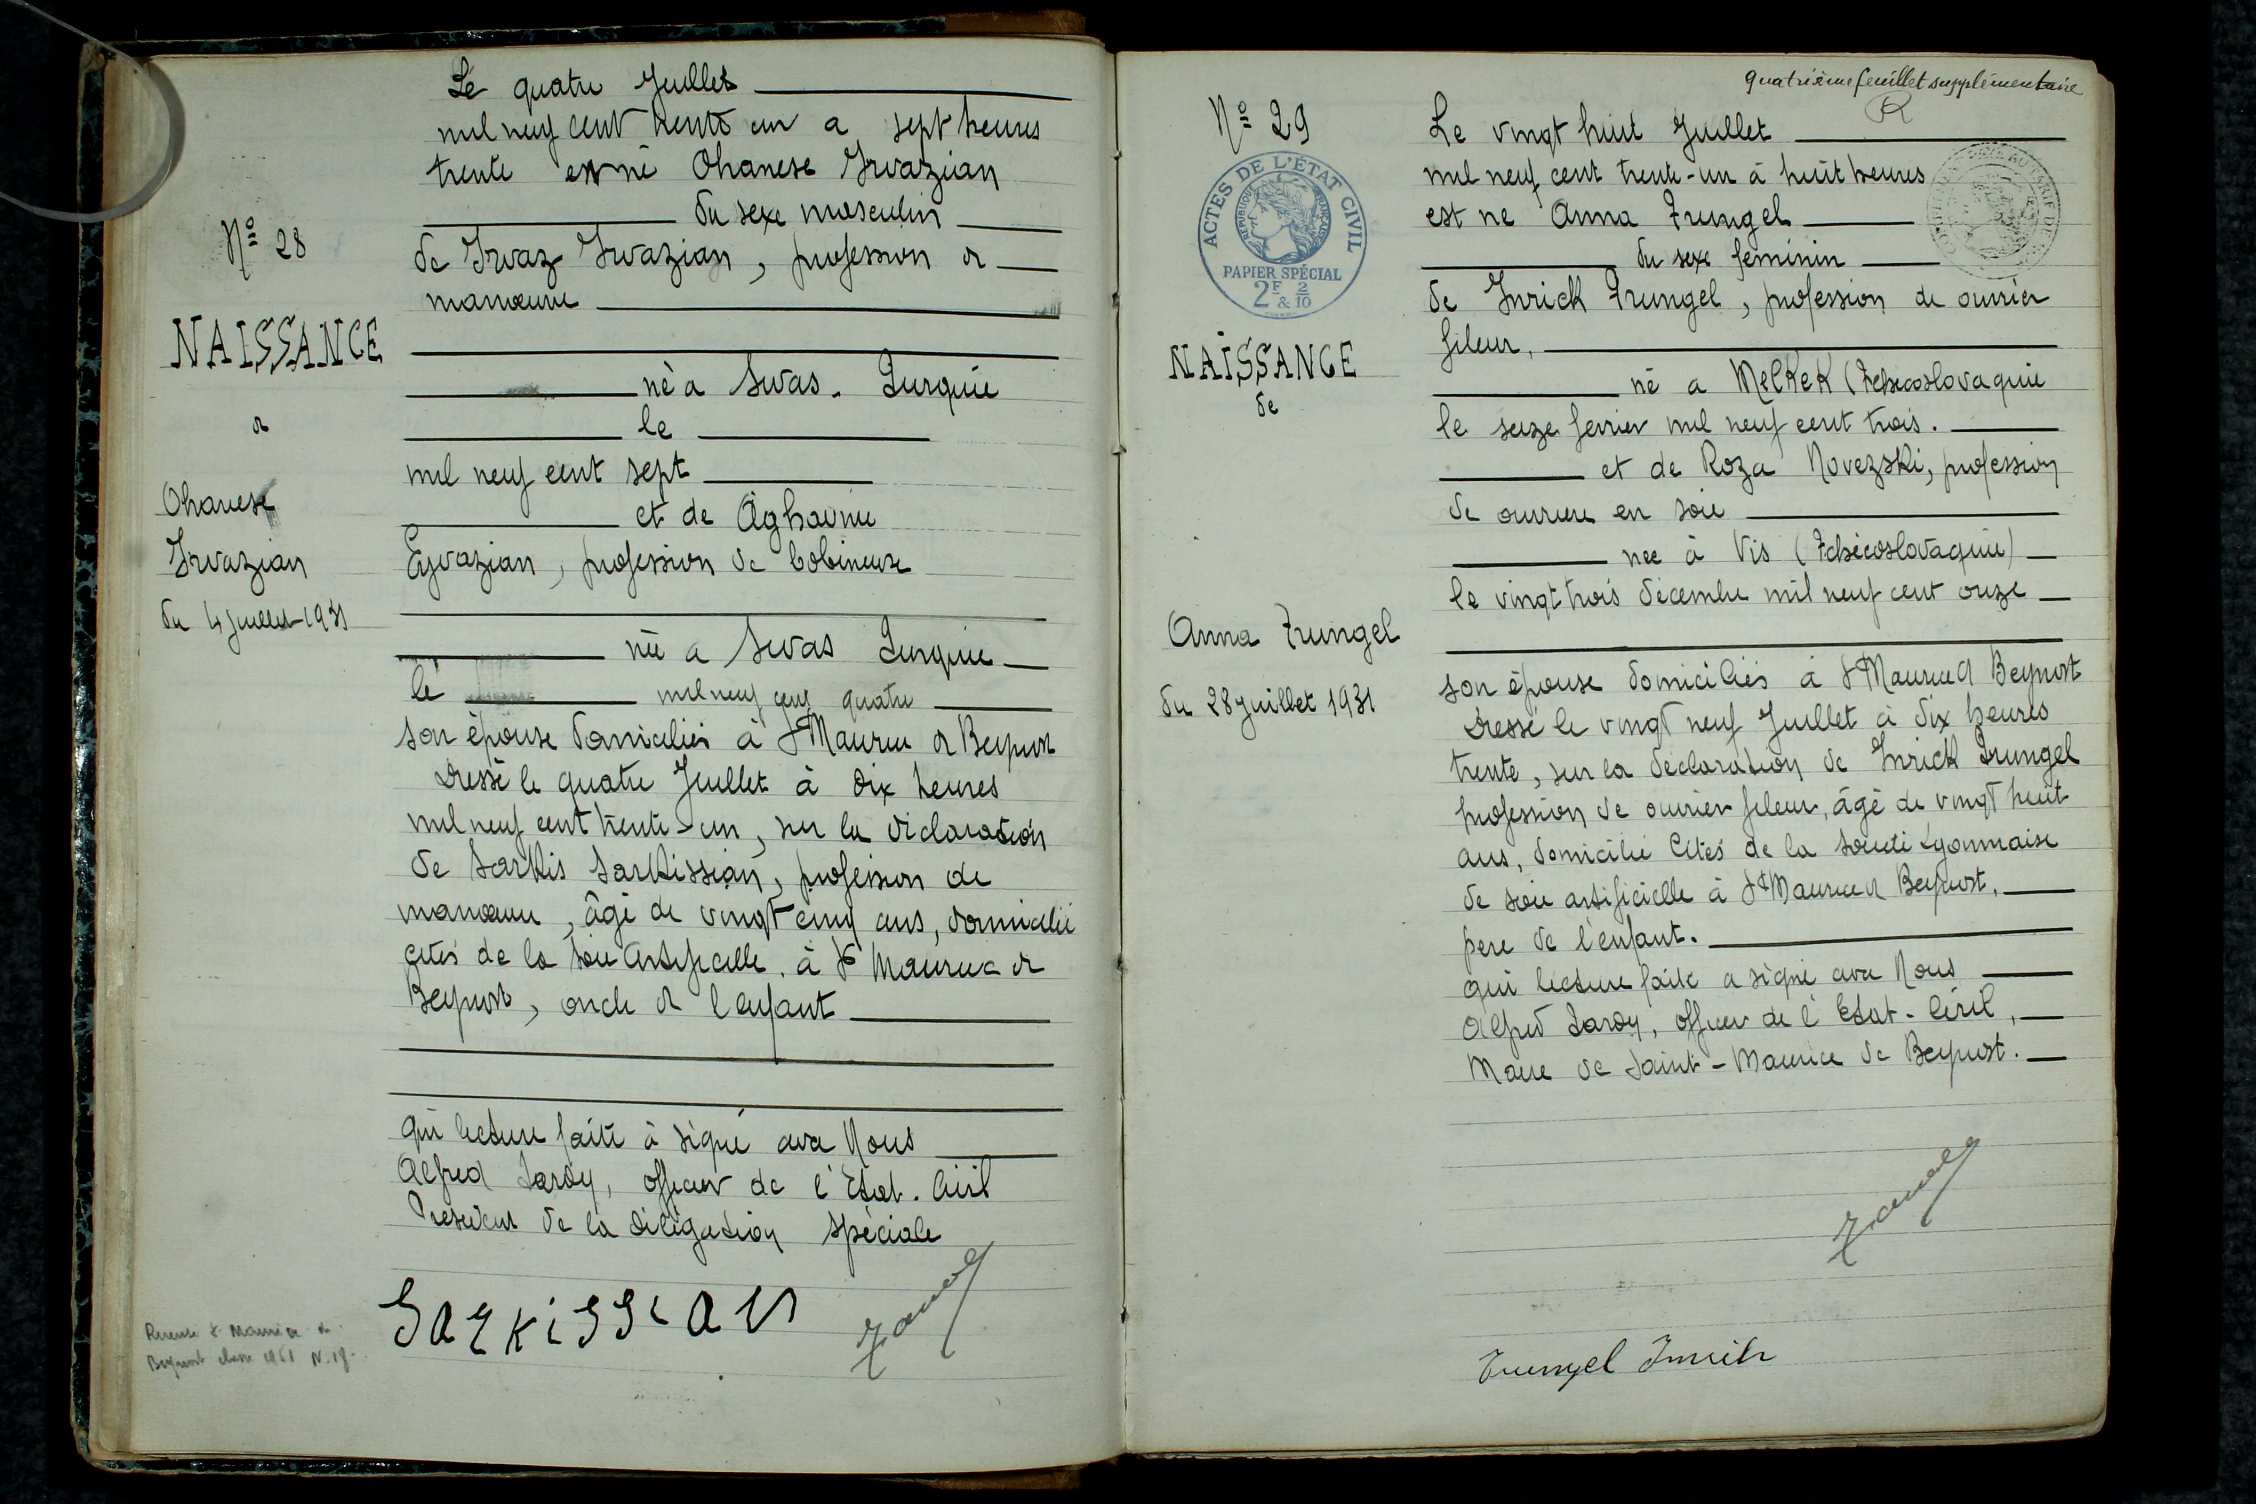 Le quatre Juillet
mil neuf cent trente un a sept heures
trente est né Ohanese Irvazian
du sexe masculin
de Irvaz Irvazian, profession de
manœuvre
né a Sivas. Turquie
le
mil neuf cent sept
et de Aghavnie
Eyvazian, profession de bobineuse
née a Sivas Turquie
le mil neuf cent quatre
son épouse domiciliés à St Maurice de Beynost
Dressé le quatre Juillet à dix heures
mil neuf cent trente-un, sur la déclaration
de Sarkis Sarkissian, profession de
manœuvre, âgé de vingt cinq ans, domicilié
cités de la soie Artificielle. à St Maurice de
Beynost, oncle de l'enfant
qui lecture faite à signé avec Nous
Alfred Jardy, officier de l'Etat-Civil
Président de la délégation spéciale
Sarkissian
No 28
NAISSANCE
de
Ohanese
Irvazian
du 4 juillet 1931
Recensé St Maurice de
Beynost classe 1951 N. 19
quatrième feuillet supplémentaire
No 29
ACTES DE L'ÉTAT CIVIL
RÉPUBLIQUE FRANÇAISE
PAPIER SPÉCIAL
2F & 2/10
NAISSANCE
de
Anna Trungel
du 28 juillet 1931
Le vingt huit Juillet
mil neuf cent trente-un à huit heures
est ne Anna Trungel
du sexe féminin
de Inrick Trungel, profession de ouvrier
fileur,
né a Melkek (Tchécoslovaquie
le seize fevrier mil neuf cent trois.
et de Roza Novezski, profession
de ouvriere en soie
nee à Vis (Tchécoslovaquie)
le vingt trois décembre mil neuf cent onze
son épouse domiciliés à St Maurice d Beynost
Dressé le vingt neuf Juillet à dix heures
trente, sur la déclaration de Inrick Trungel
profession de ouvrier fileur, âgé de vingt huit
ans, domicilié Cités de la Société Lyonnaise
de soie artificielle à St Maurice d Beynost,
pere de l'enfant.
qui lecture faite a signé avec Nous
Alfred Jardy, officier de l'Etat-Civil,
Maire de Saint-Maurice de Beynost.
Trungel Inrich